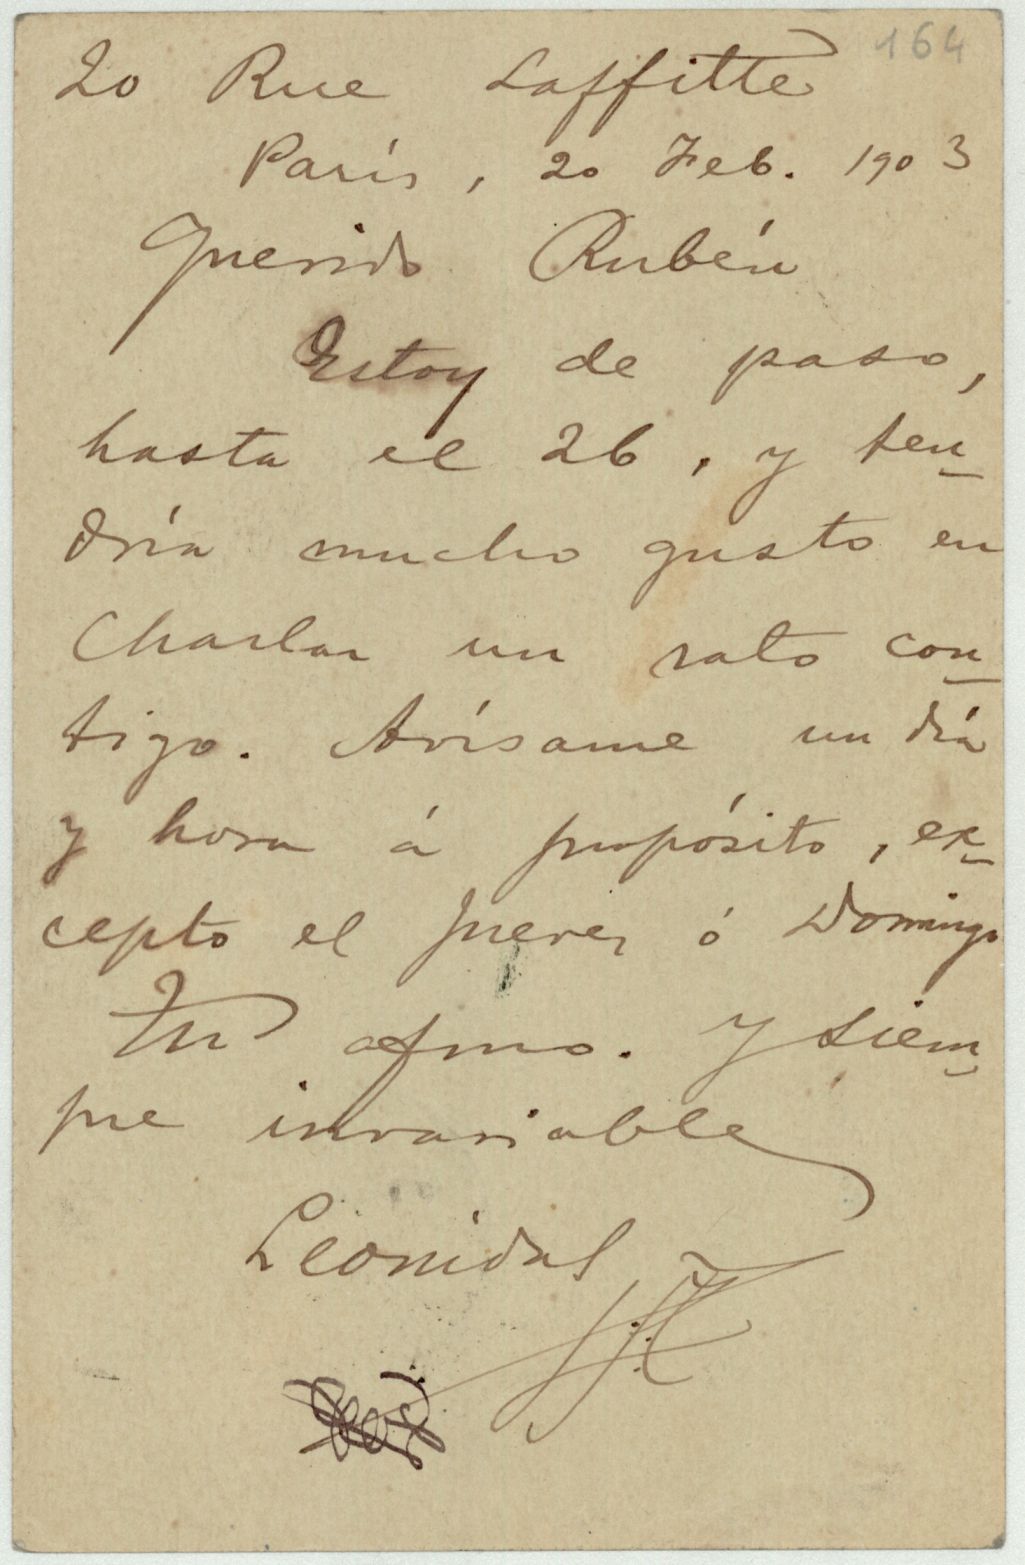 164
20 Rue Laffitte
París, 20 Feb. 1903
Querido Rubén
Estoy de paso,
hasta el 26, y ten-
dría mucho gusto en
Charlar un rato con-
tigo. Avísame un día
y hora á propósito, ex-
cepto el Jueves ó Domingo
Tu afmo. y siem-
pre invariable
Leonidas